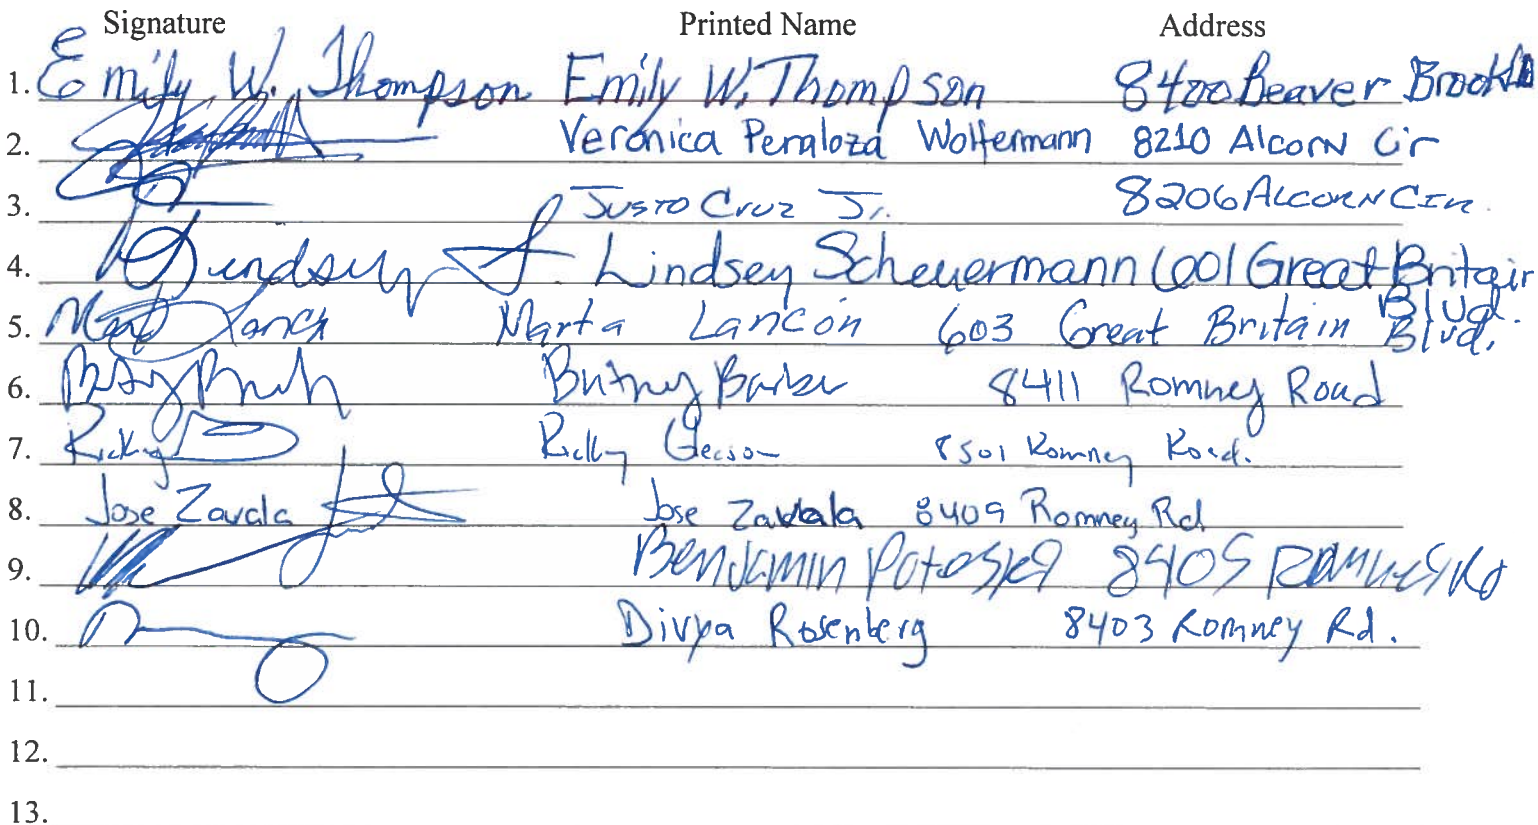 Signature Printed Name Address
1. Emily W. Thompson Emily W. Thompson 8400 Beaver Brook Ln
2. Veronica Penaloza Woltermann 8210 Alcorn Cir
3. Justo Cruz Jr. 8206 Alcorn Cir.
4. Lindsey S. Lindsey Scheuermann 601 Great Britain
Blvd.
5. Marta Lancon Marta Lancón 603 Great Britain Blvd.
6. Britney Barber 8411 Romney Road
7. Ricky Ricky 8501 Romney Road.
8. Jose Zavala Jose Zavala 8409 Romney Rd
9. Benjamin Potoski 8405 Romney Rd
10. Divya Rosenberg 8403 Romney Rd.
11.
12.
13.